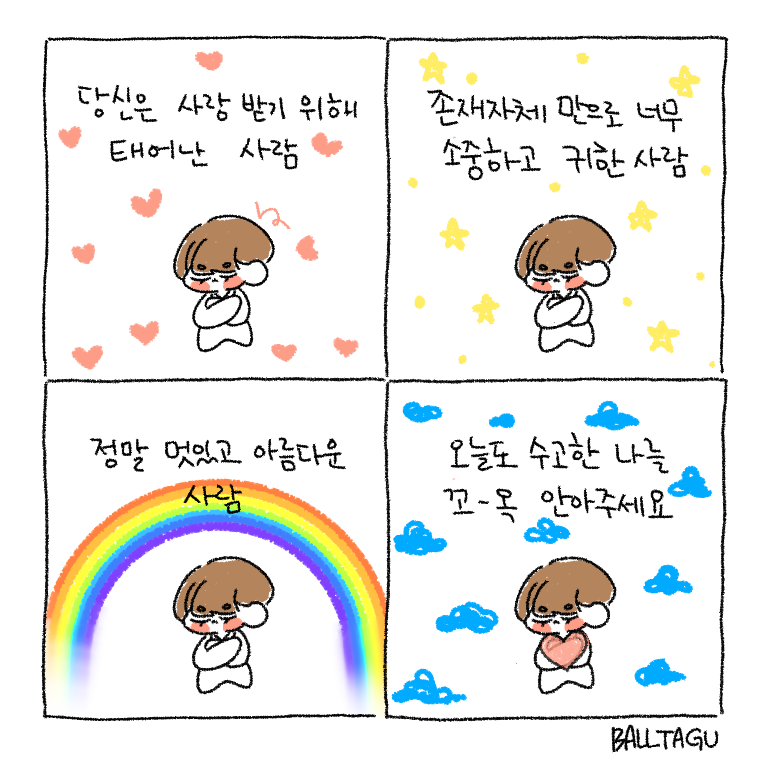 당신은 사랑 받기 위해
태어난 사람
존재자체 만으로 너무
소중하고 귀한 사람
정말 멋있고 아름다운
사람
오늘도 수고한 나를
꼬-옥 안아주세요
BALLTAGU